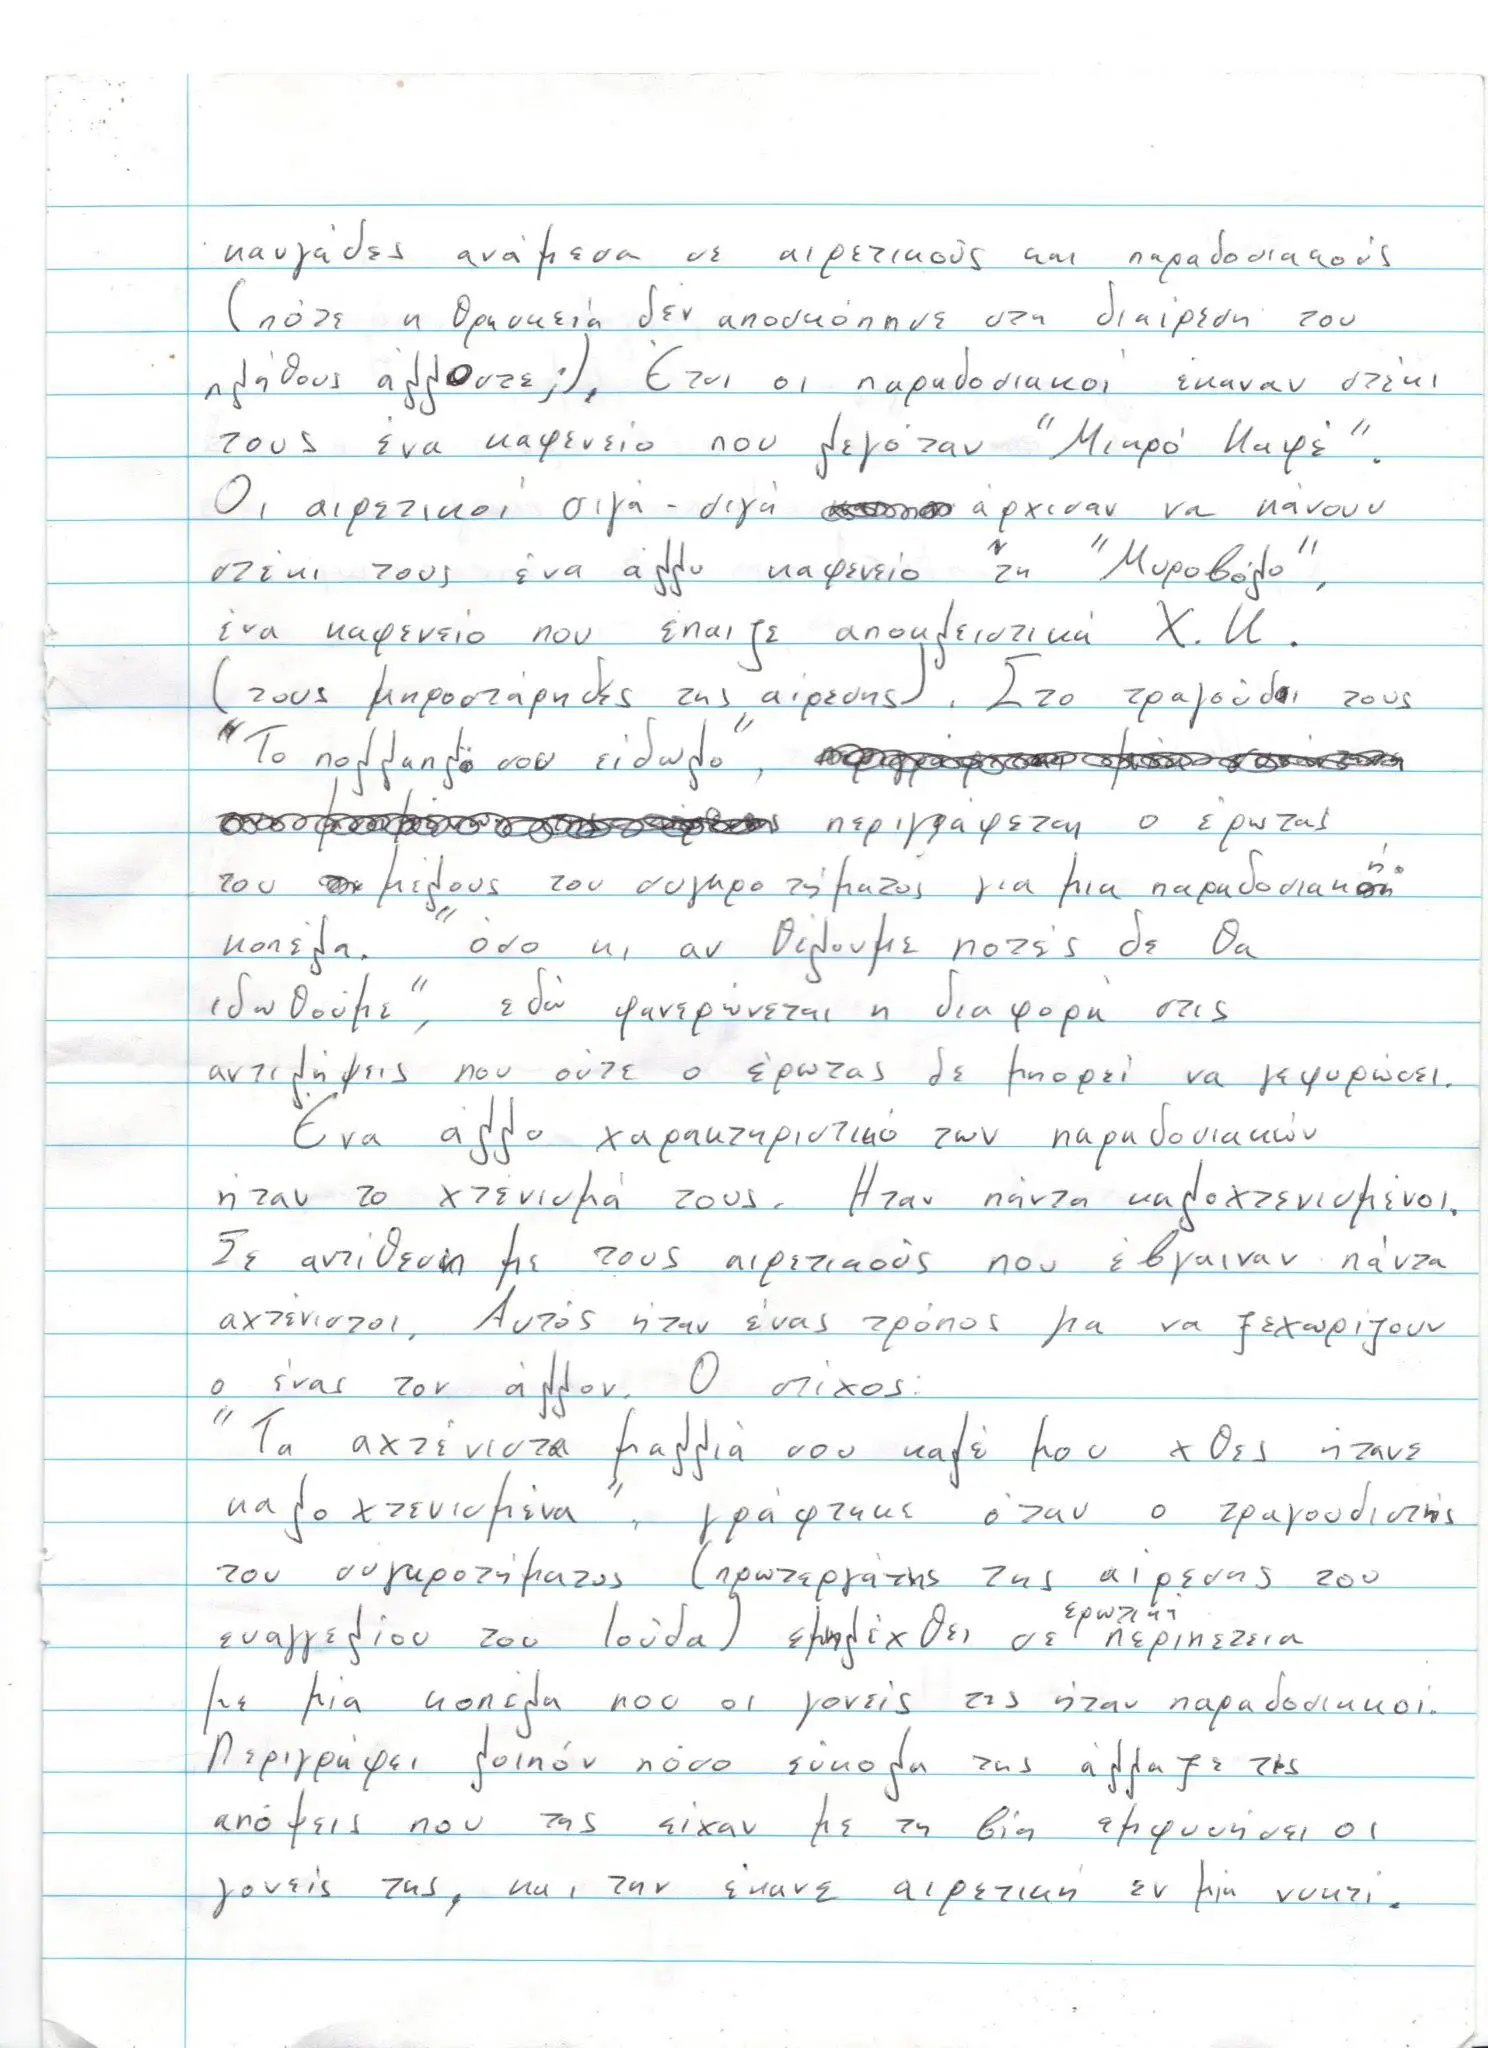 καυγάδες ανάμεσα σε αιρετικούς και παραδοσιακούς
(πότε η θρησκεία δεν αποσκόπησε στη διαίρεση του
πλήθους άλλοστε;). Έτσι οι παραδοσιακοί έκαναν στέκι
τους ένα καφενείο που λεγόταν "Μικρό Καφέ".
Οι αιρετικοί σιγά-σιγά άρχισαν να κάνουν
στέκι τους ένα άλλο καφενείο τη "Μυροβόλο",
ένα καφενείο που έπαιζε αποκλειστικά Χ.Κ.
(τους μπροστάρηδες της αίρεσης). Στο τραγούδι τους
"Το πολλαπλό σου είδωλο",
περιγράφεται ο έρωτας
του μέλους του συγκροτήματος για μια παραδοσιακή
κοπέλα. "όσο κι αν θέλουμε ποτές δε θα
ιδωθούμε", εδώ φανερώνεται η διαφορά στις
αντιλήψεις που ούτε ο έρωτας δε μπορεί να γεφυρώσει.
Ένα άλλο χαρακτηριστικό των παραδοσιακών
ήταν το χτένισμά τους. Ήταν πάντα καλοχτενισμένοι.
Σε αντίθεση με τους αιρετικούς που έβγαιναν πάντα
αχτένιστοι. Αυτός ήταν ένας τρόπος για να ξεχωρίζουν
ο ένας τον άλλον. Ο στίχος:
"Τα αχτένιστα μαλλιά σου καλέ μου χθες ήτανε
καλοχτενισμένα", γράφτηκε όταν ο τραγουδιστής
του συγκροτήματος (πρωτεργάτης της αίρεσης του
ευαγγελίου του Ιούδα) εμπλέχθει σε ερωτική περιπετεια
με μία κοπέλα που οι γονείς της ήταν παραδοσιακοί.
Περιγράφει λοιπόν πόσο εύκολα της άλλαξε τις
απόψεις που της είχαν με τη βία εμφυσήσει οι
γονείς της, και την έκανε αιρετική εν μία νυκτί.